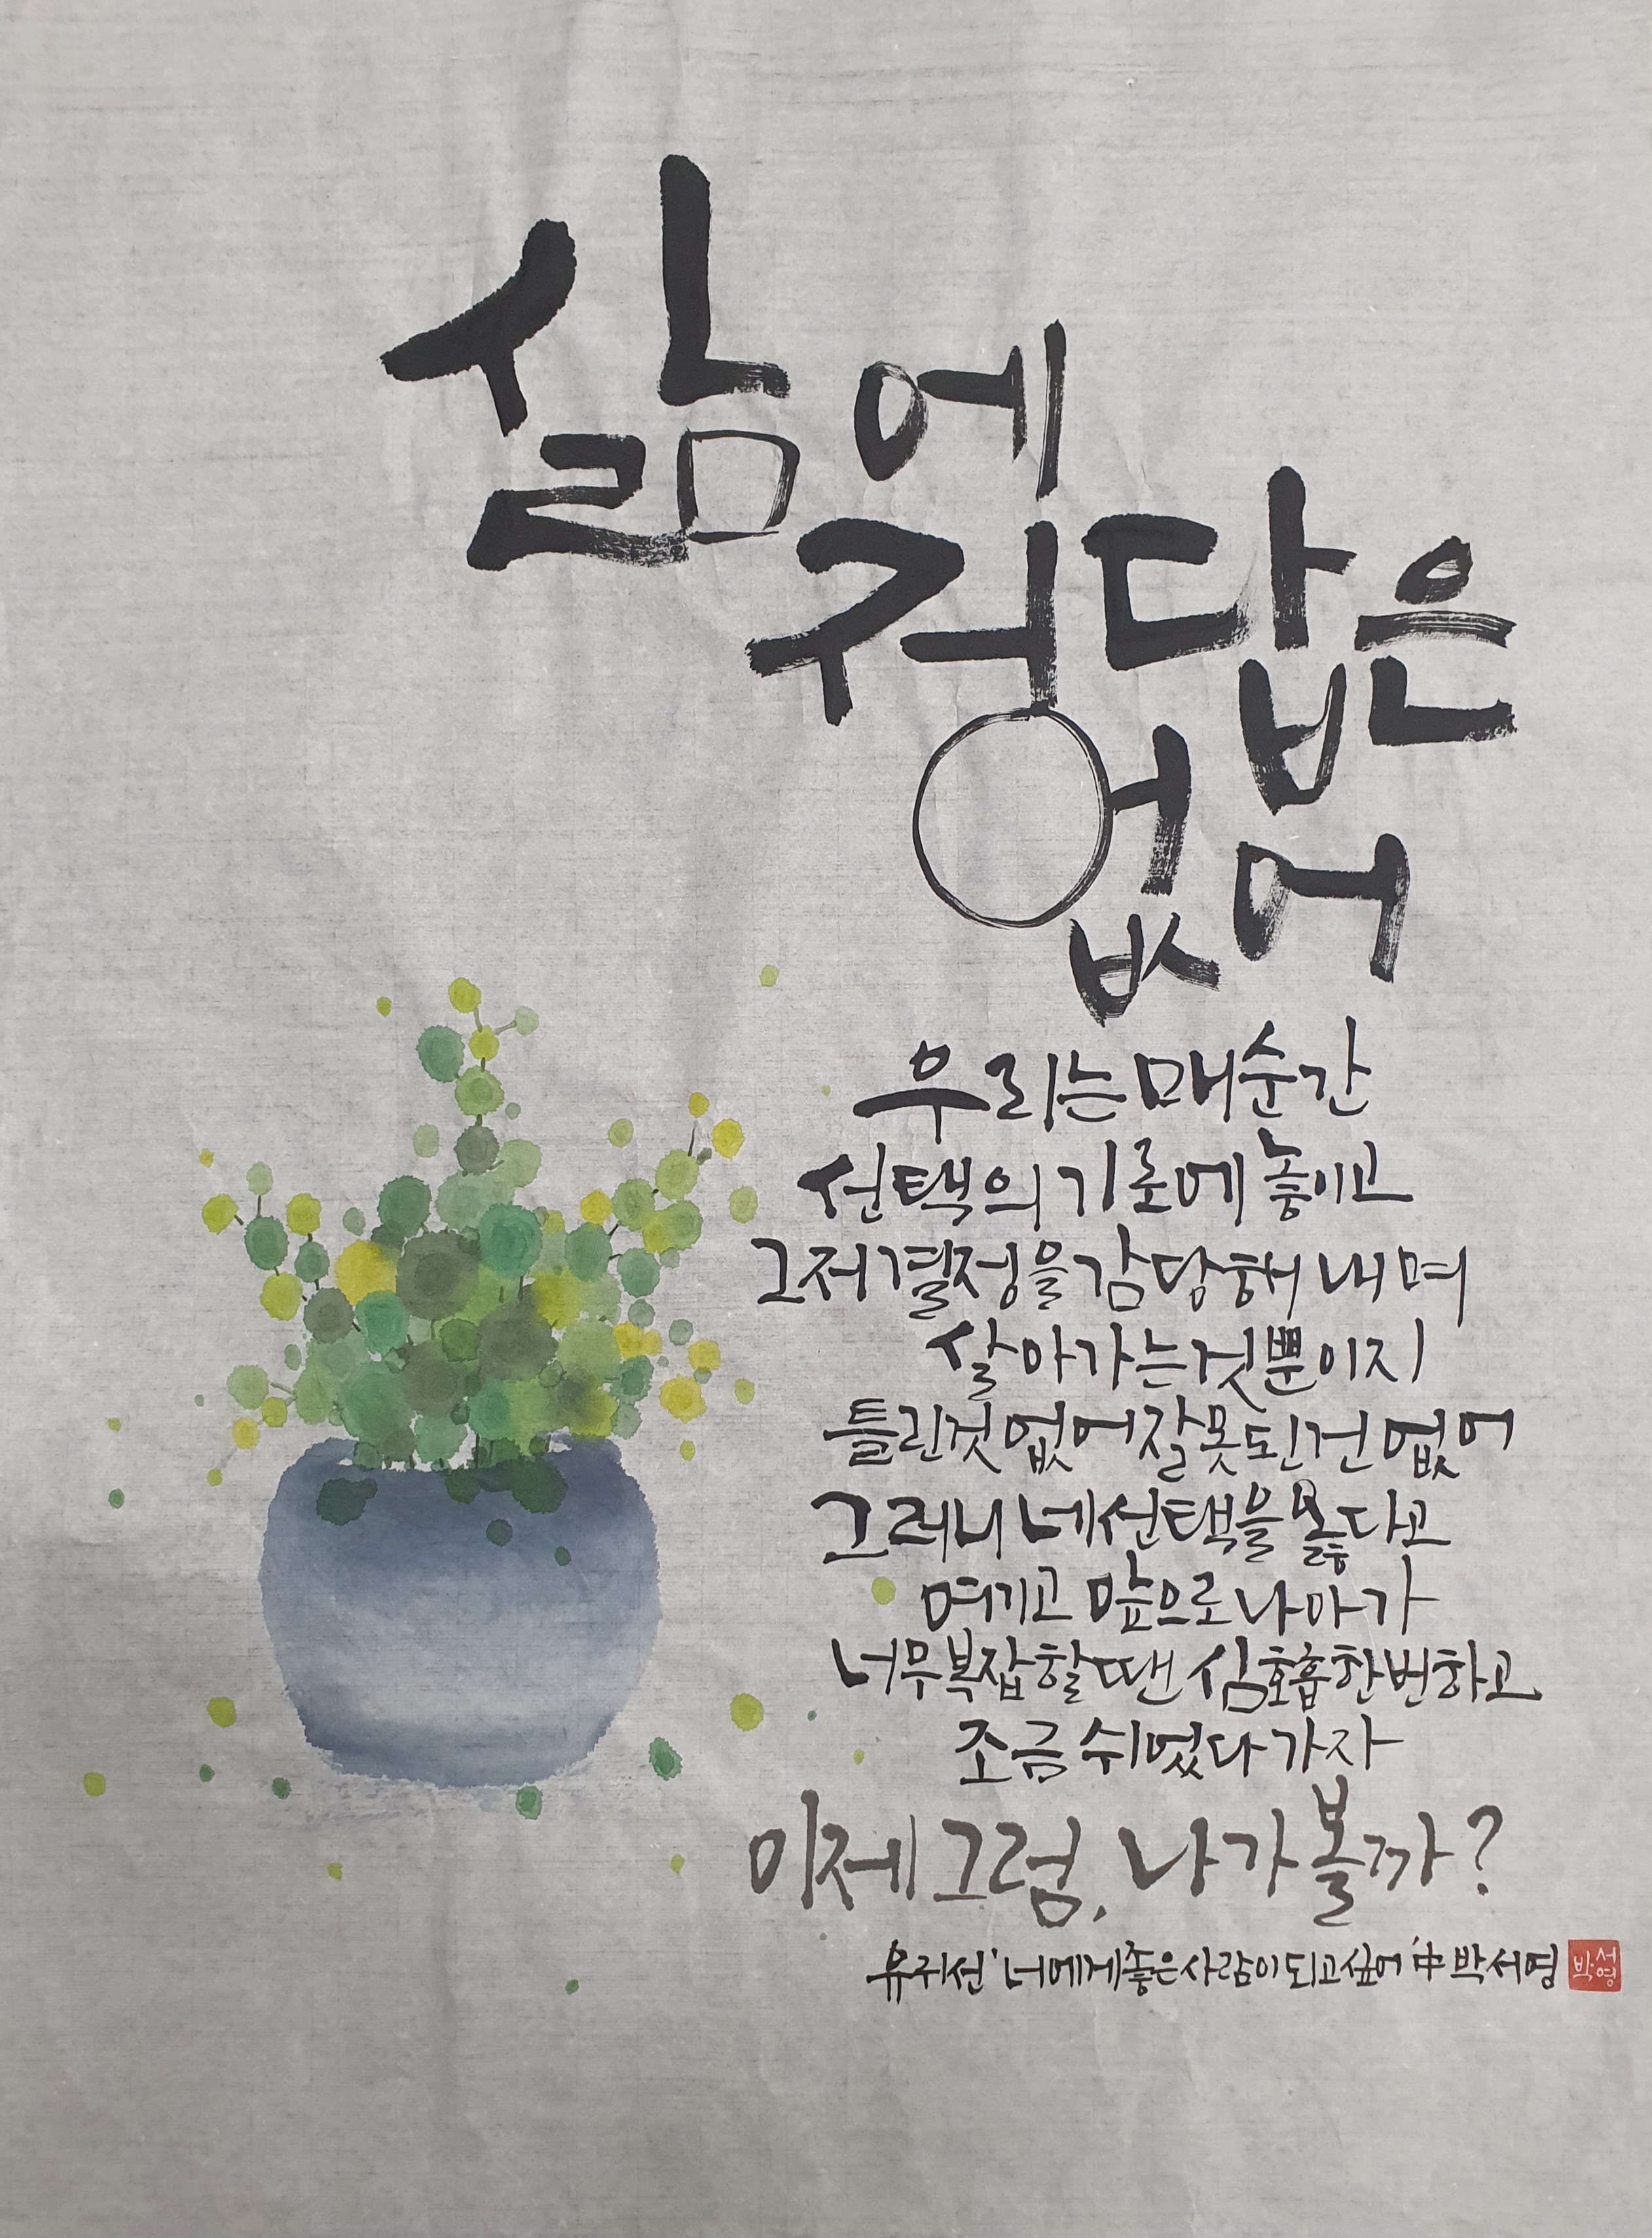 삶에
정답은
없어
우리는 매순간
선택의 기로에 놓이고
그저 결정을 감당해 내며
살아가는 것 뿐이지
틀린것 없어 잘못된 건 없어
그러니 네 선택을 옳다고
여기고 앞으로 나아가
너무 복잡할 땐 심호흡 한번하고
조금 쉬었다 가자
이제 그럼, 나가 볼까?
유귀선 '너에게 좋은 사람이 되고 싶어' 中 박서영
박서영